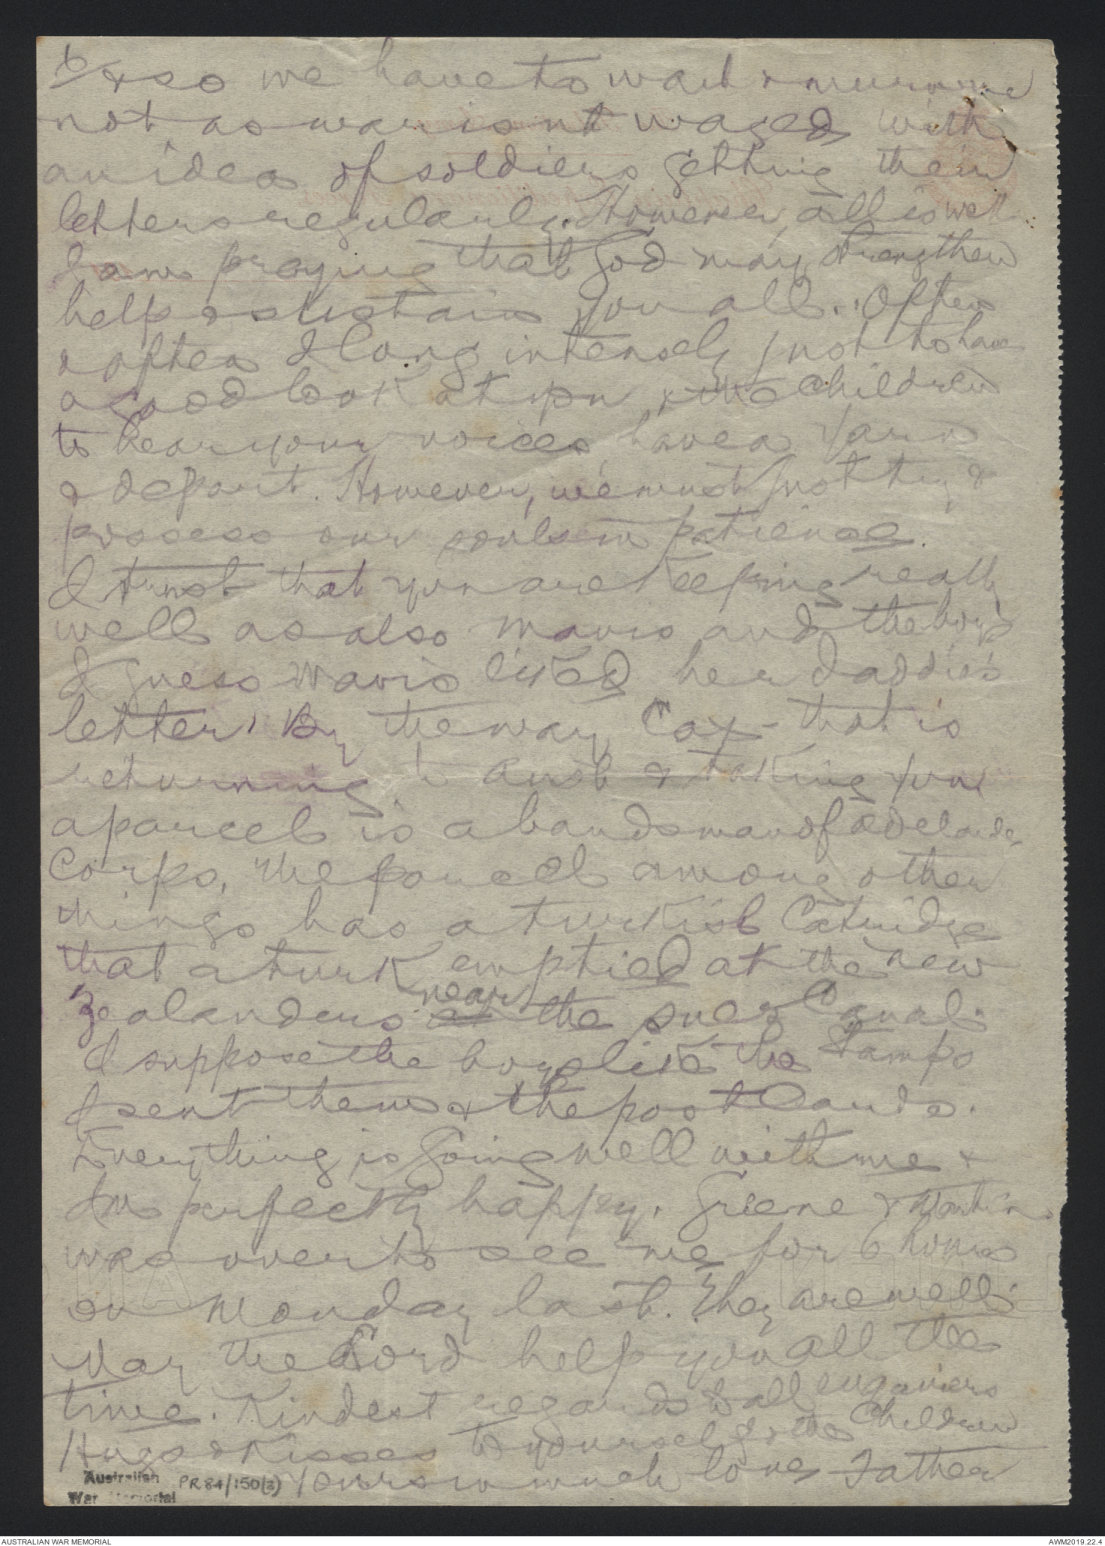 6/ & so we have to wait & murmur
not as war isn't waged with
an idea of soldiers getting their
letters regularly. However all is well
I am praying that God may strengthen
help & sustain you all. Often
& often I long intensely just to have
a good look at you & the children
to hear your voices have a yarn
& depart. However, we must just try &
possess our souls in patience.
I trust that you are keeping really
well as also Mavis and the boys
I guess Mavis liked her daddie's
letter. By the way Cox - that is
returning to Aust & taking you
a parcel is a bandsman of Adelaide
Corps. The parcel among other
things has a Turkish Catridge
that a Turk emptied at the New
Zealanders near the Suez Canal.
I suppose the boys like the Stamps
I sent them & the post Cards.
Everything is going well with me &
I'm perfectly happy. Greene & Martin
was over to see me for 6 hours
on Monday last. They are well.
May the Lord help you all the
time. Kindest regards to all enquirers
Hugs & Kisses to yourself & the Children
Yours in much love Father
Australian
War Memorial
PR 84/150(3)
AUSTRALIAN WAR MEMORIAL
AWM2019.22.4